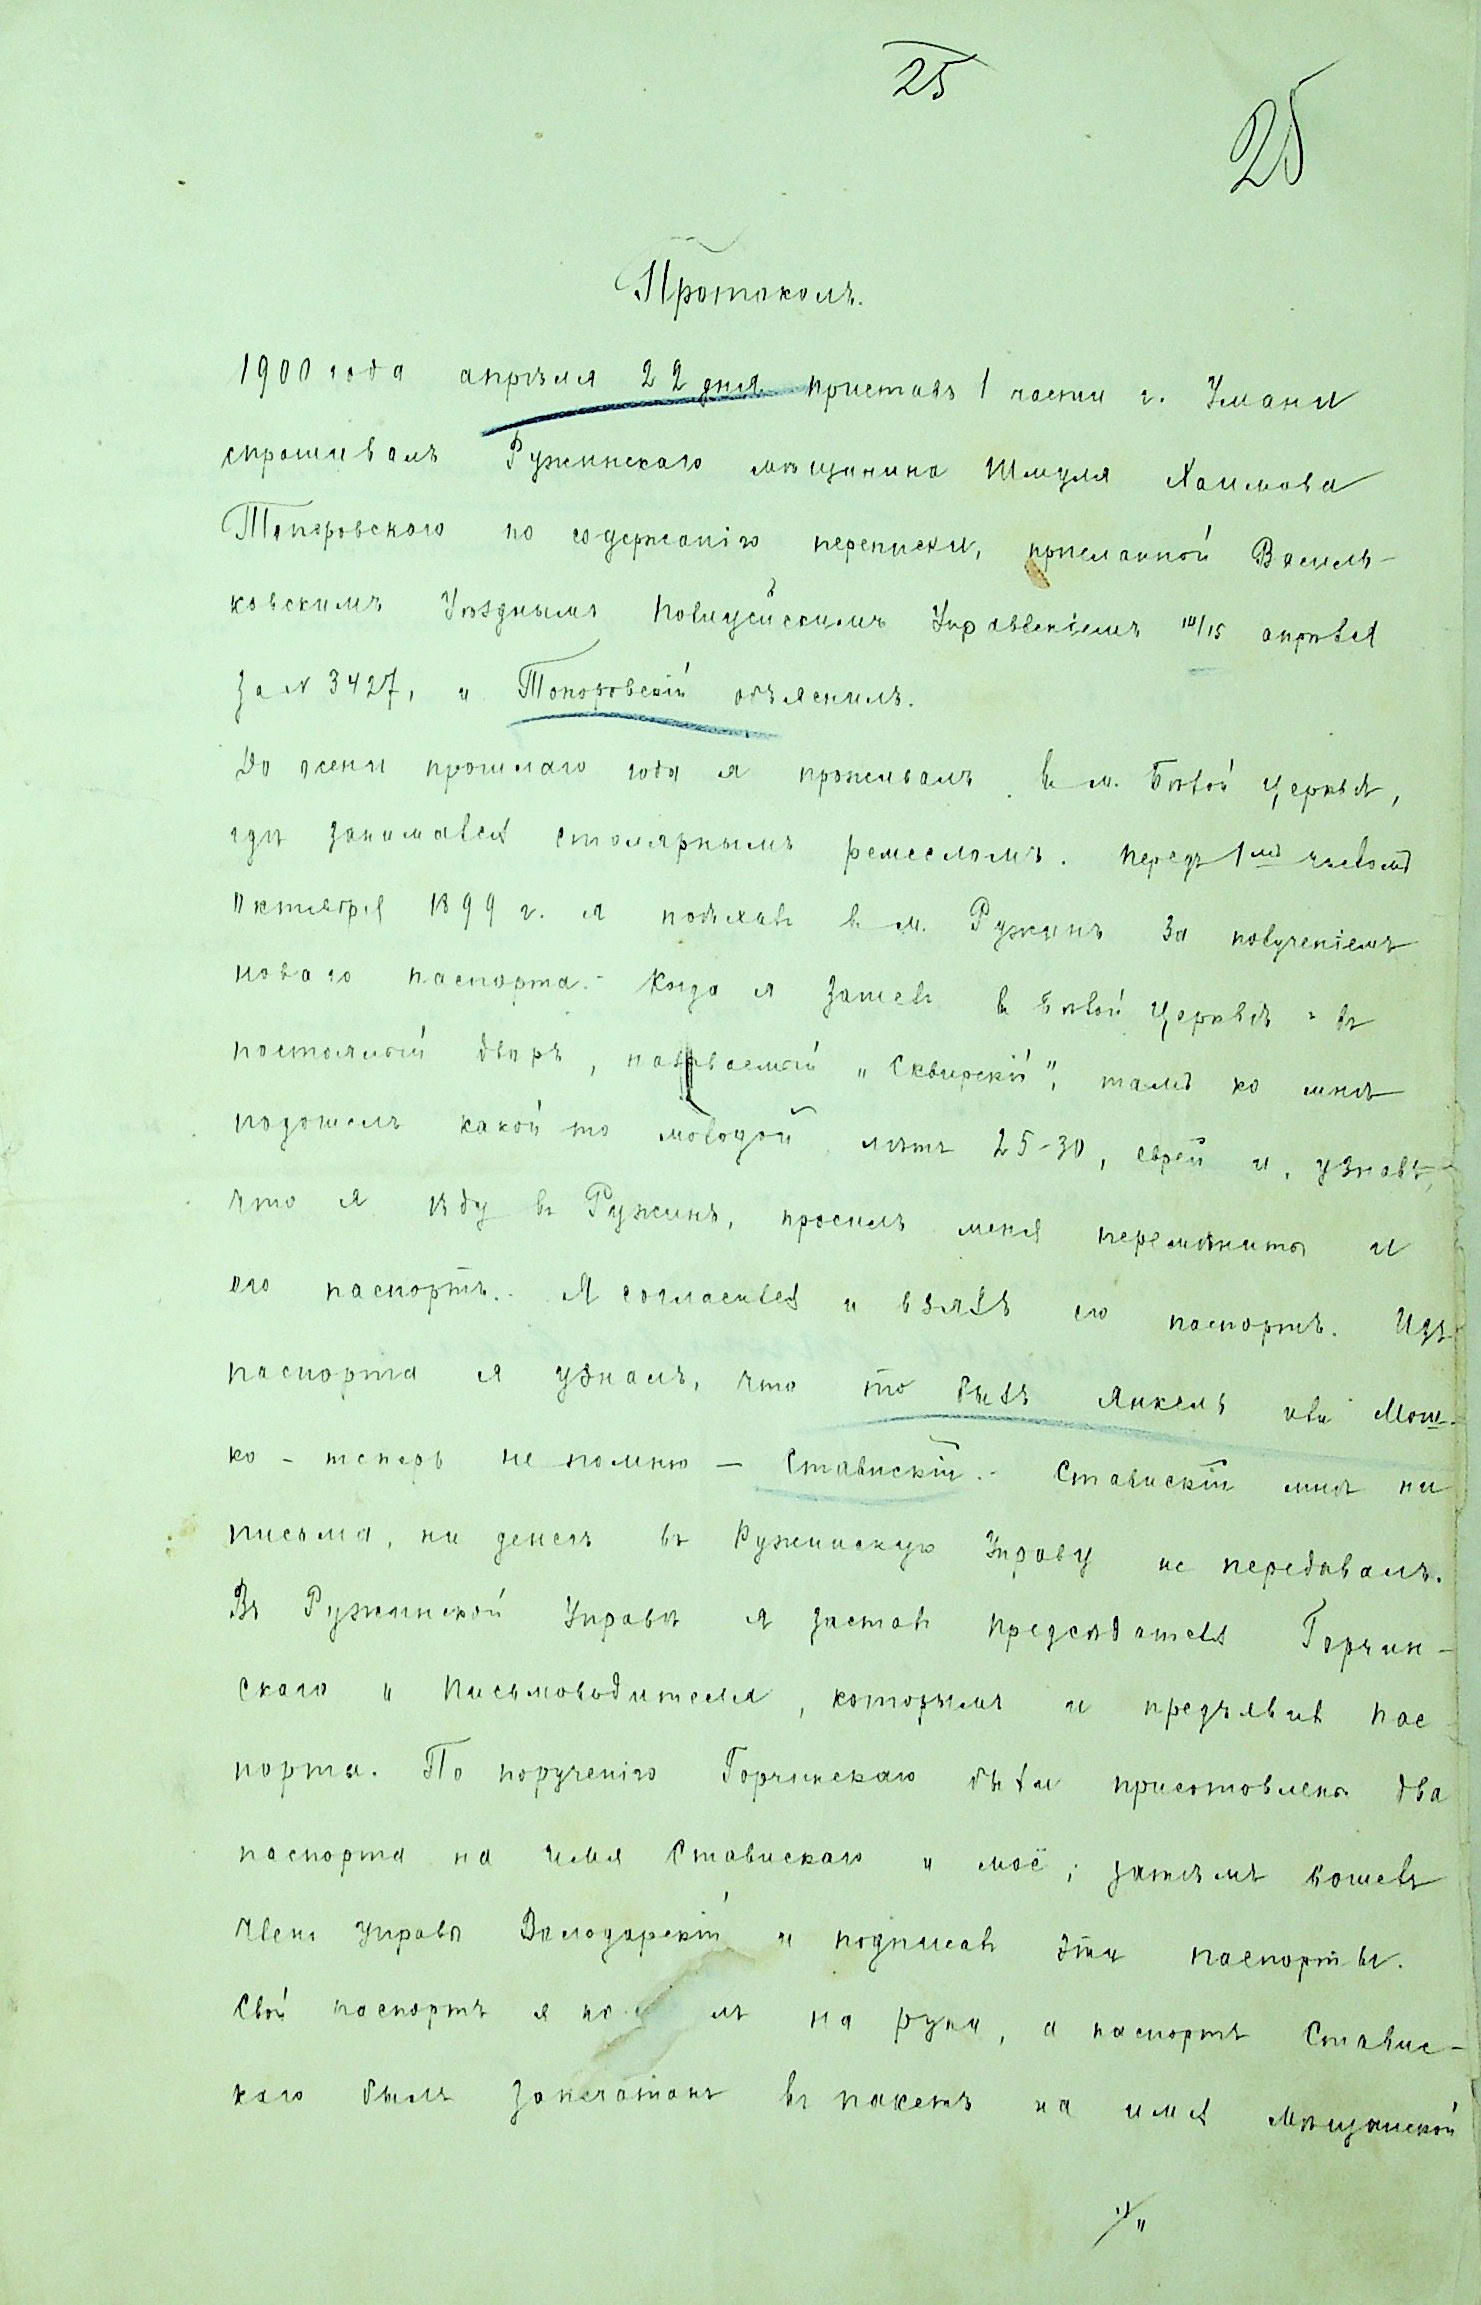 25
25
Протоколъ.
1900 года апрѣля 22 дня приставъ 1 части г. Умани
спрашивалъ Ружинскаго мѣщанина Шмуля Хаимова
Топоровскаго по содержанію переписки, присланной Василь-
ковскимъ Уѣзднымъ Полицейскимъ Управленіемъ 14/15 апрѣля
за № 3427, и Топоровскій объяснилъ.
До осени прошлаго года я проживалъ въ м. Бѣлой Церквѣ,
гдѣ занимался столярнымъ ремесломъ. Передъ 1мъ числомъ
Октября 1899 г. я поѣхалъ въ м. Ружинъ за полученіемъ
новаго паспорта. - Когда я зашелъ въ Бѣлой Церквѣ въ
постоялый дворъ, называемый "Сквирскій", тамъ ко мнѣ
подошелъ какой то молодой лѣтъ 25-30, еврей и, узнавъ,
что я ѣду въ Ружинъ, просилъ меня перемѣнить и
его паспортъ. - Я согласился и взялъ его паспортъ. Изъ
паспорта я узналъ, что то былъ Янкель или Мош-
ко - теперь не помню - Ставискій. - Ставискій мнѣ ни
письма, ни денегъ въ Ружинскую Управу не передавалъ.
Въ Ружинской Управѣ я засталъ предсѣдателя Горчин-
скаго и письмоводителя, которымъ и предъявилъ пас-
порта. По порученію Горчинскаго были приготовлены два
паспорта на имя Ставискаго и моё; затѣмъ вошелъ
членъ Управы Володарскій и подписалъ эти паспорты.
Свой паспортъ я на руки, а паспортъ Ставис-
каго былъ запечатанъ въ пакетъ на имя Мѣщанской